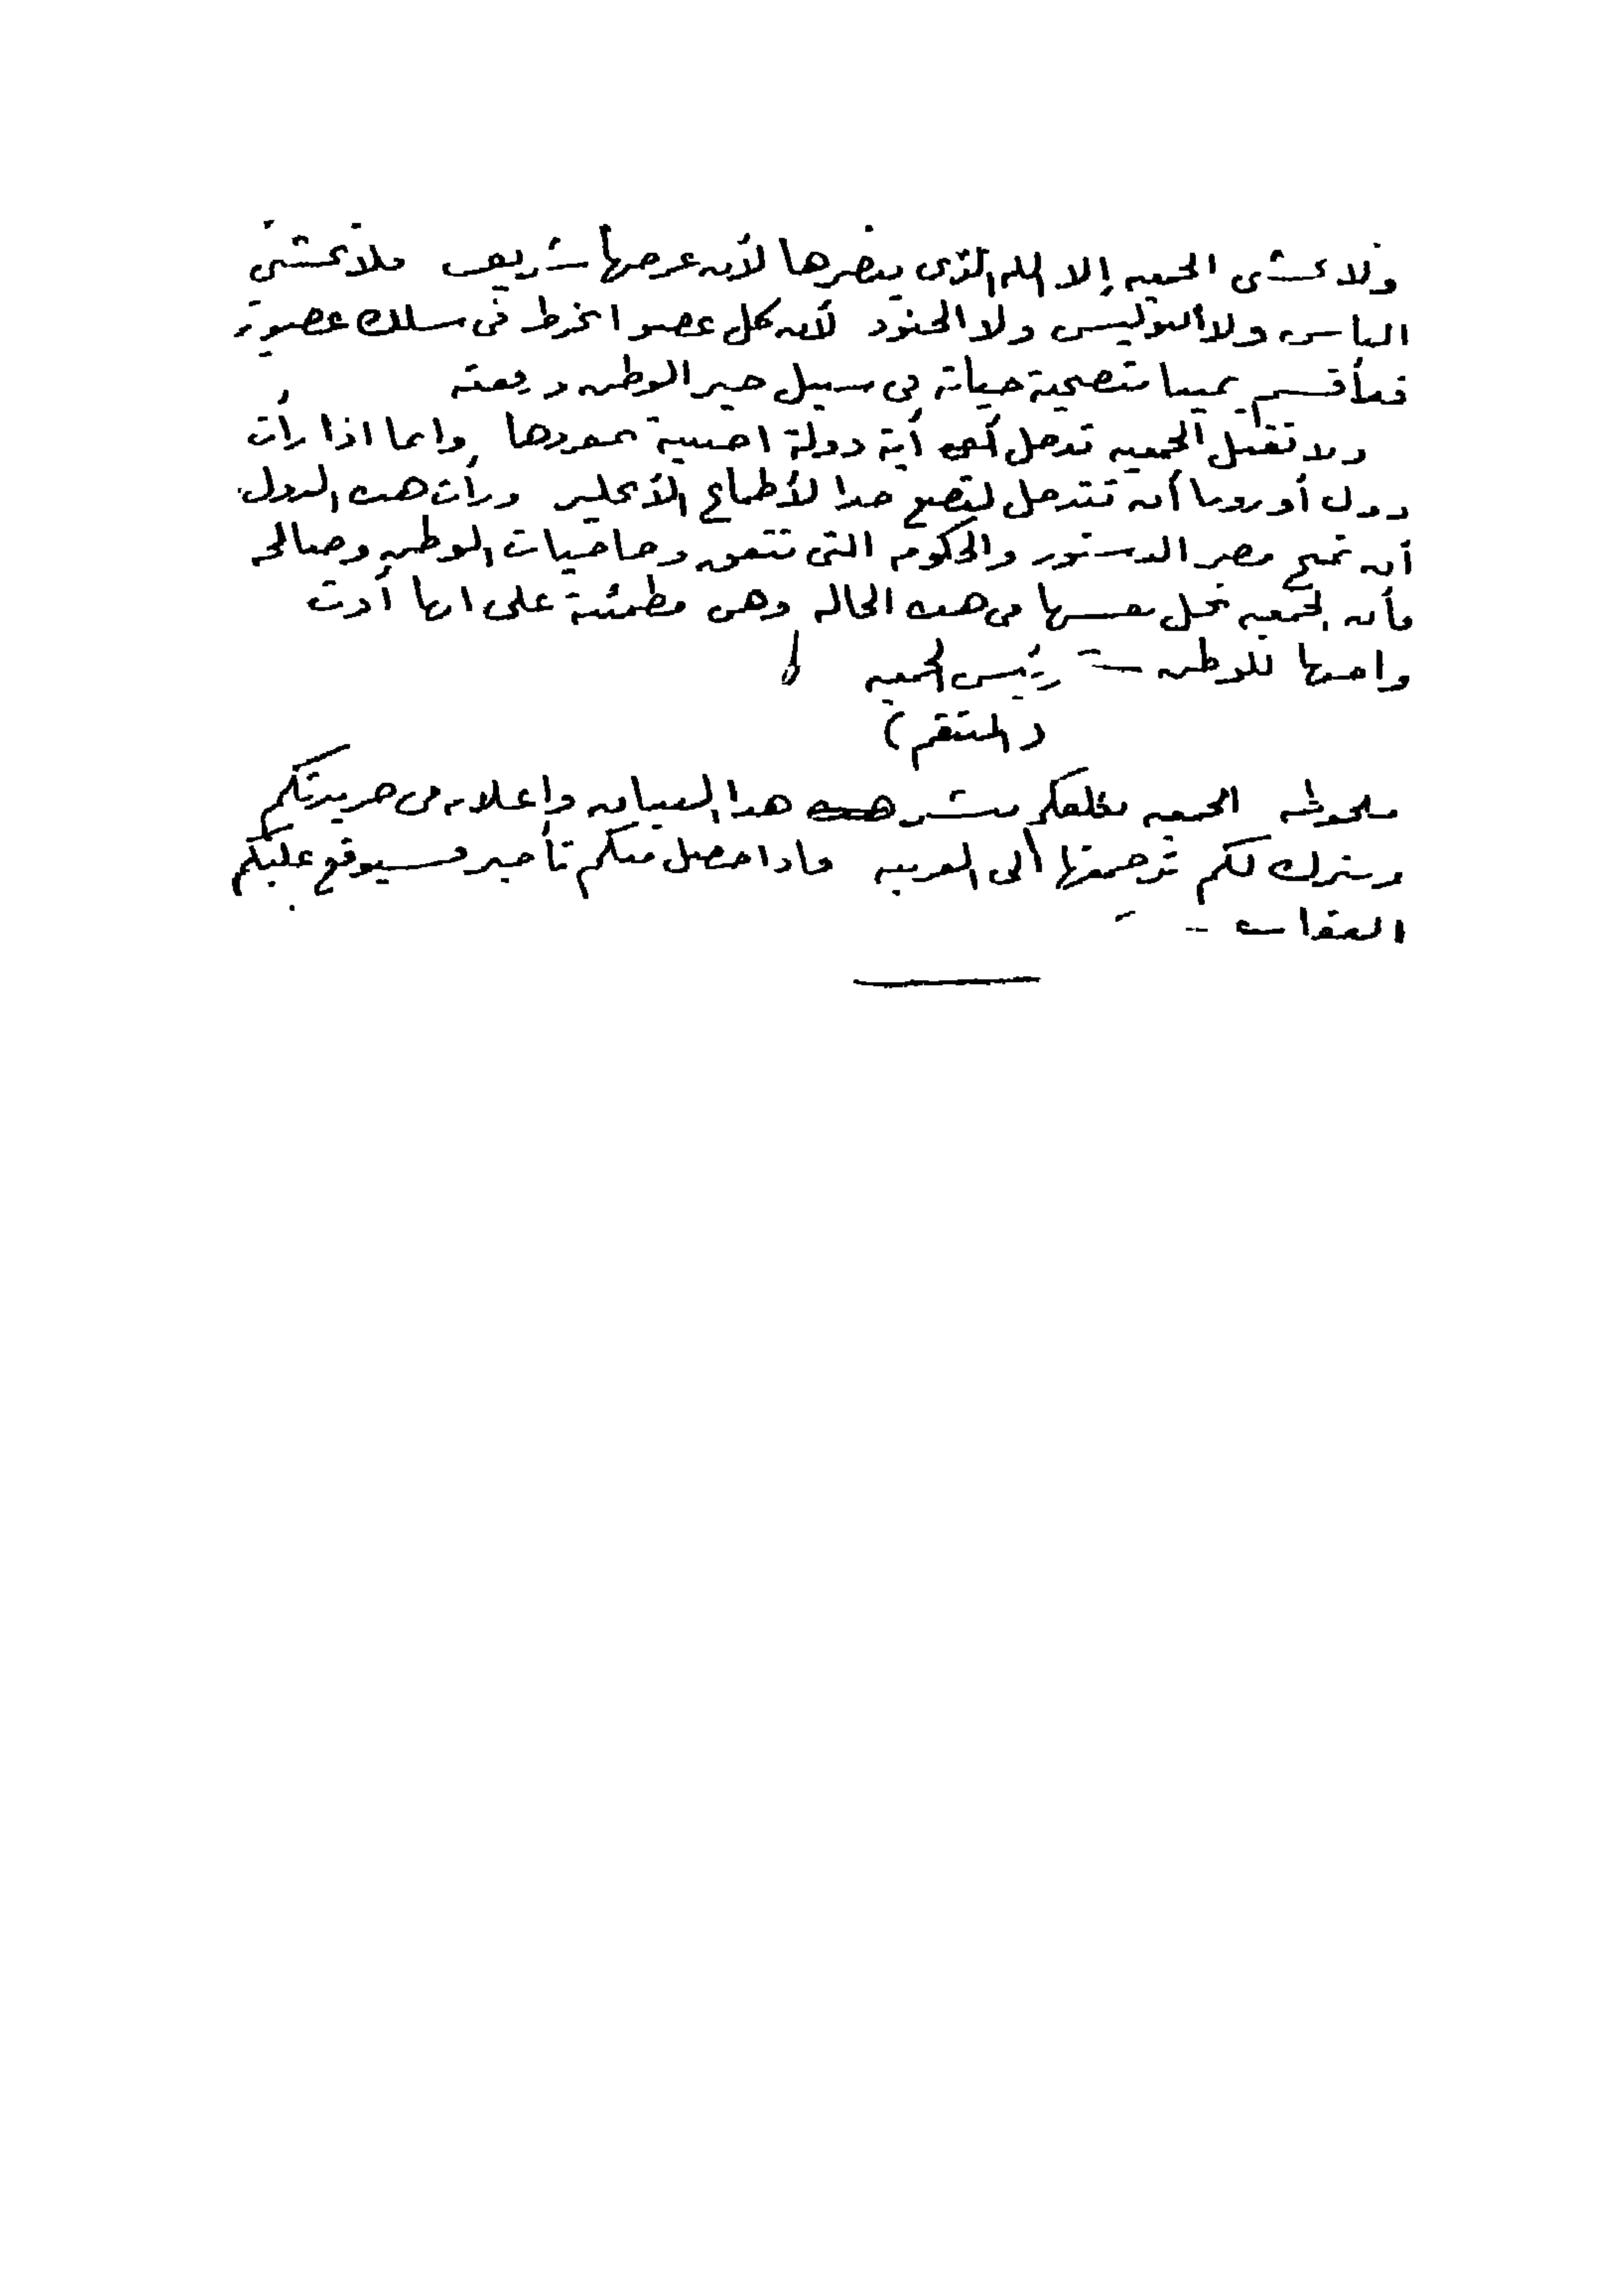 ولا تخشى الجمعيه إلا الله الذى ينصرها لأن غرضها شريف فلا تخشى
الناس ولا البوليس ولا الجنود لأن كل عضو انخرط فى سلك عضوية
قد أقسم يمينا بتضحية حياته فى سبيل خير الوطن ورفعته
ولا تقبل الجمعيه تدخل أية دولة اجنبية بمفردها وانما اذا رأت
دول أوروبا أن تتدخل لتضع حدا لأطماع الأنجليز ورأت هذه الدول
أن تمنح مصر الدستور والحكومه التى تتفق وحاجيات الوطن وصالحه
فأن الجمعيه تحل نفسها فى هذه الحاله وهى مطمئنة على انها أدت
واجبها للوطن رئيس الجمعيه
(المنتقم)
ملحوظه الجمعيه تكلفكم بنشر هذا البيان واعلانه فى جريدتكم
وتترك لكم ترجمتها ألى العربيه فاذا حصل منكم تأخير فسيوقع عليكم
العقاب